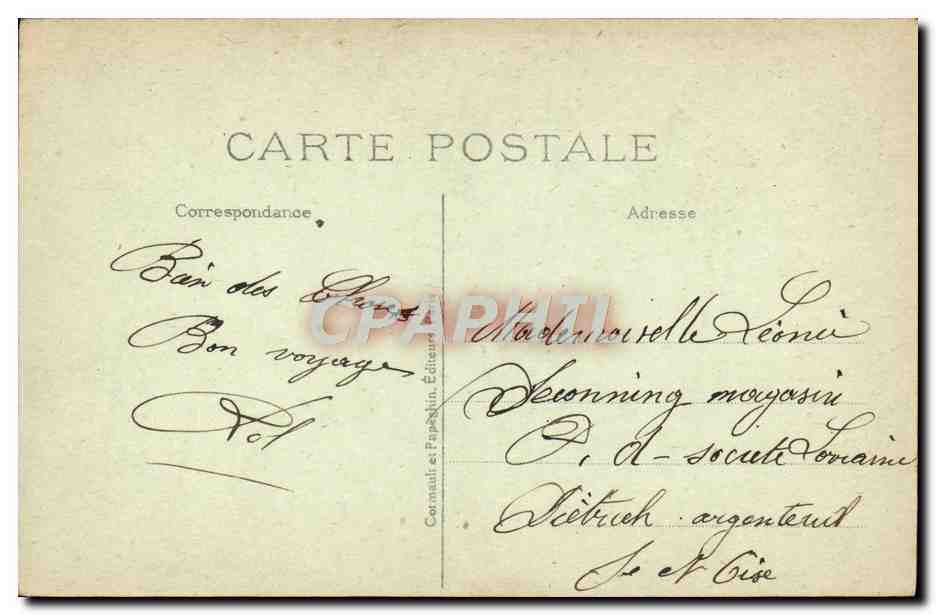 CARTE POSTALE
Correspondance
Adresse
Bon voyage
Pol
Mademoiselle Léonie
magasin
P. d - societé Lorraine
Diétrich argenteuil
Se et Oise
Cormault et Papeghin, Éditeurs
CPAPHIL